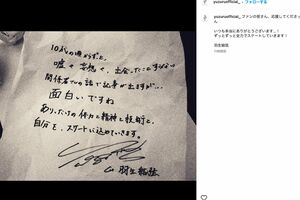 10代の頃からずっと、
嘘や妄想や、出会ったことすらない
関係者での話で記事が出ますが…
面白いですね
ありったけの体力と精神と技術と、
自分を、スケートに込めていきます。
羽生結弦
yuzuruofficial_・フォローする
yuzuruofficial_ ファンの皆さん、応援してくださっ
いつも本当にありがとうございます…！
ずっとずっと全力でスケートしていきます！
羽生結弦